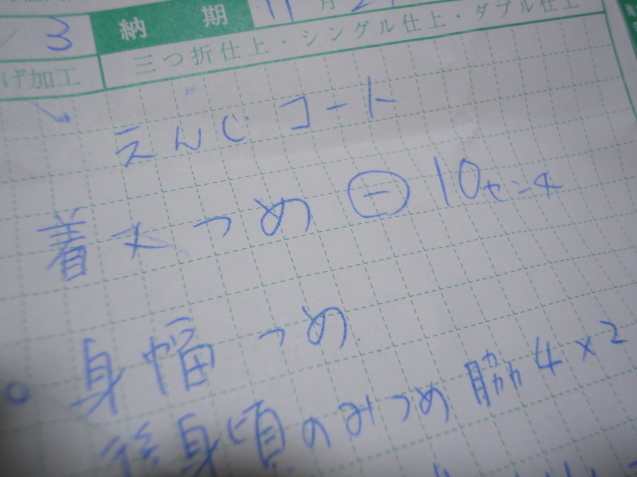 3 納期 11月2
げ加工 三つ折仕上・シングル仕上・ダブル仕上
えんじコート
着丈つめ ㊀10センチ
・身幅つめ
後身頃のみつめ脇4×2